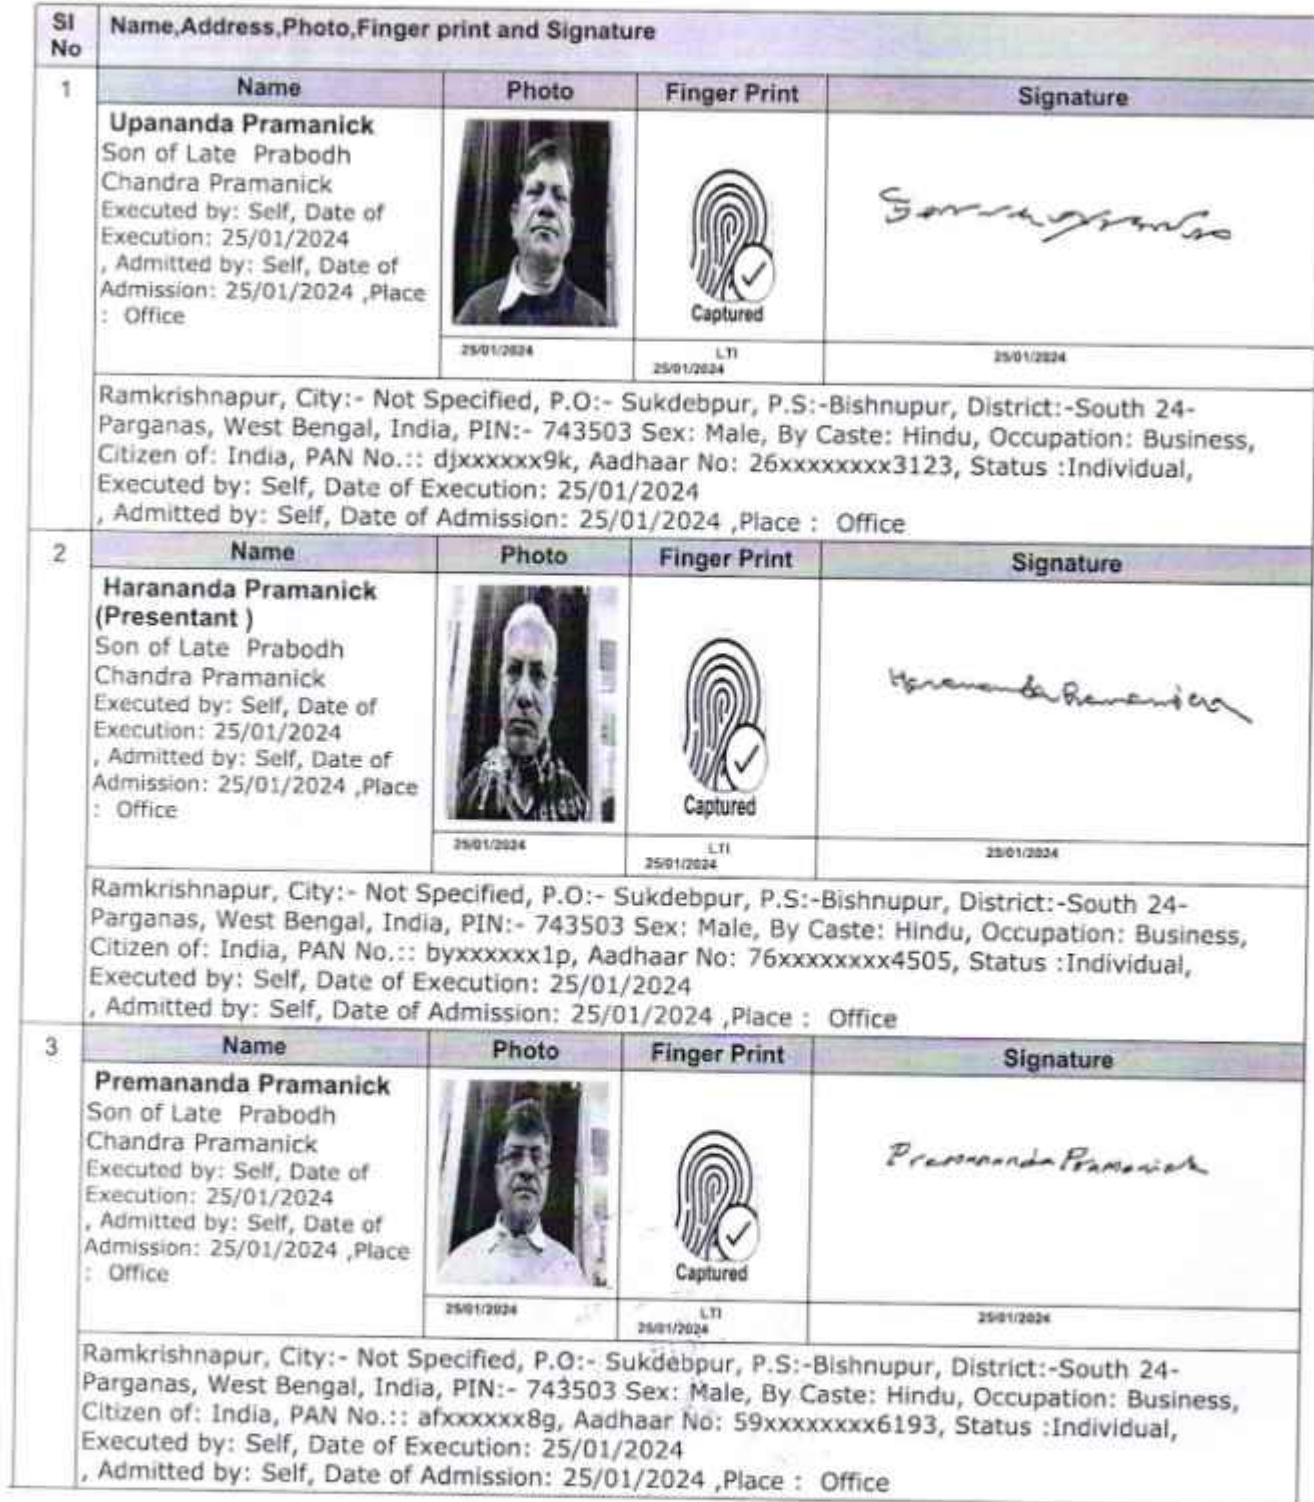 Sl No
Name,Address,Photo,Finger print and Signature
1
Name Photo Finger Print Signature
Upananda Pramanick
Son of Late Prabodh
Chandra Pramanick
Executed by: Self, Date of
Execution: 25/01/2024
, Admitted by: Self, Date of
Admission: 25/01/2024 ,Place
: Office
Captured
25/01/2024
LTI
25/01/2024
25/01/2024
Ramkrishnapur, City:- Not Specified, P.O:- Sukdebpur, P.S:-Bishnupur, District:-South 24-
Parganas, West Bengal, India, PIN:- 743503 Sex: Male, By Caste: Hindu, Occupation: Business,
Citizen of: India, PAN No.:: djxxxxxx9k, Aadhaar No: 26xxxxxxxx3123, Status :Individual,
Executed by: Self, Date of Execution: 25/01/2024
, Admitted by: Self, Date of Admission: 25/01/2024 ,Place : Office
2
Name Photo Finger Print Signature
Harananda Pramanick
(Presentant )
Son of Late Prabodh
Chandra Pramanick
Executed by: Self, Date of
Execution: 25/01/2024
, Admitted by: Self, Date of
Admission: 25/01/2024 ,Place
: Office
Captured
Harananda Pramanick
25/01/2024
LTI
25/01/2024
25/01/2024
Ramkrishnapur, City:- Not Specified, P.O:- Sukdebpur, P.S:-Bishnupur, District:-South 24-
Parganas, West Bengal, India, PIN:- 743503 Sex: Male, By Caste: Hindu, Occupation: Business,
Citizen of: India, PAN No.:: byxxxxxx1p, Aadhaar No: 76xxxxxxxx4505, Status :Individual,
Executed by: Self, Date of Execution: 25/01/2024
, Admitted by: Self, Date of Admission: 25/01/2024 ,Place : Office
3
Name Photo Finger Print Signature
Premananda Pramanick
Son of Late Prabodh
Chandra Pramanick
Executed by: Self, Date of
Execution: 25/01/2024
, Admitted by: Self, Date of
Admission: 25/01/2024 ,Place
: Office
Captured
Premananda Pramanick
25/01/2024
LTI
25/01/2024
25/01/2024
Ramkrishnapur, City:- Not Specified, P.O:- Sukdebpur, P.S:-Bishnupur, District:-South 24-
Parganas, West Bengal, India, PIN:- 743503 Sex: Male, By Caste: Hindu, Occupation: Business,
Citizen of: India, PAN No.:: afxxxxxx8g, Aadhaar No: 59xxxxxxxx6193, Status :Individual,
Executed by: Self, Date of Execution: 25/01/2024
, Admitted by: Self, Date of Admission: 25/01/2024 ,Place : Office